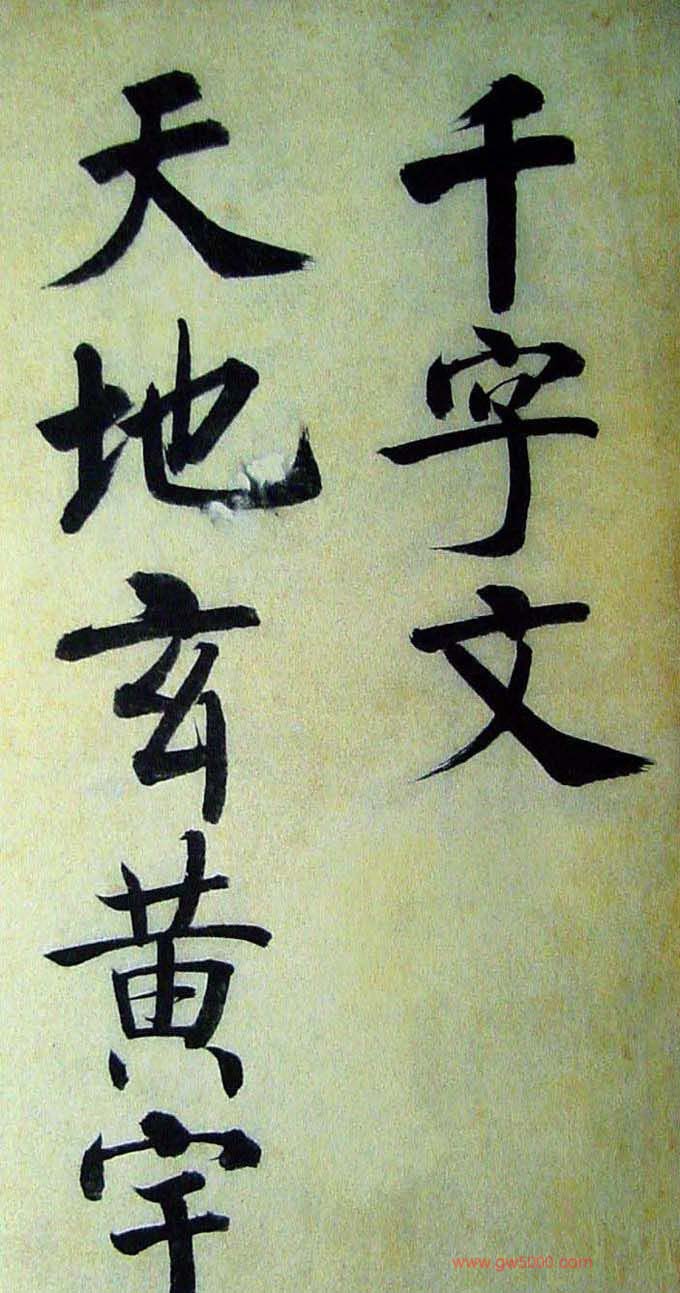 千字文
天地玄黄宇
www.gw5000.com